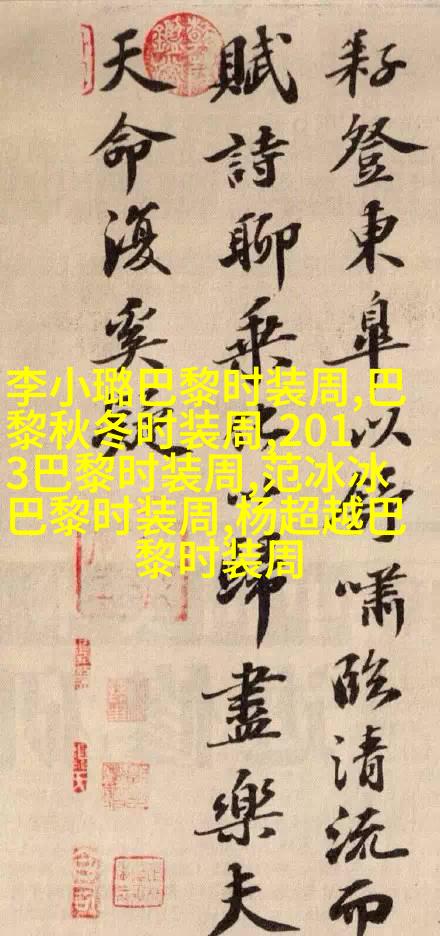 耔登東皐以舒嘯臨清流而
賦詩聊乘化以歸盡樂夫
天命復奚疑
李小璐巴黎时装周,巴
黎秋冬时装周,201
3巴黎时装周,范冰冰
巴黎时装周,杨超越巴
黎时装周